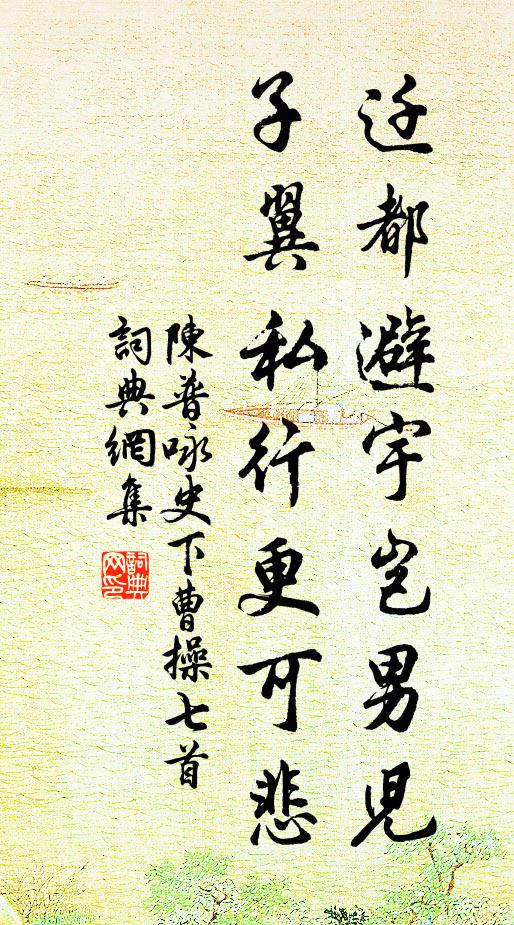 迁都避宇岂男児
子翼私行更可悲
陳普咏史下曹操七首
詞典網集
詞典
网印